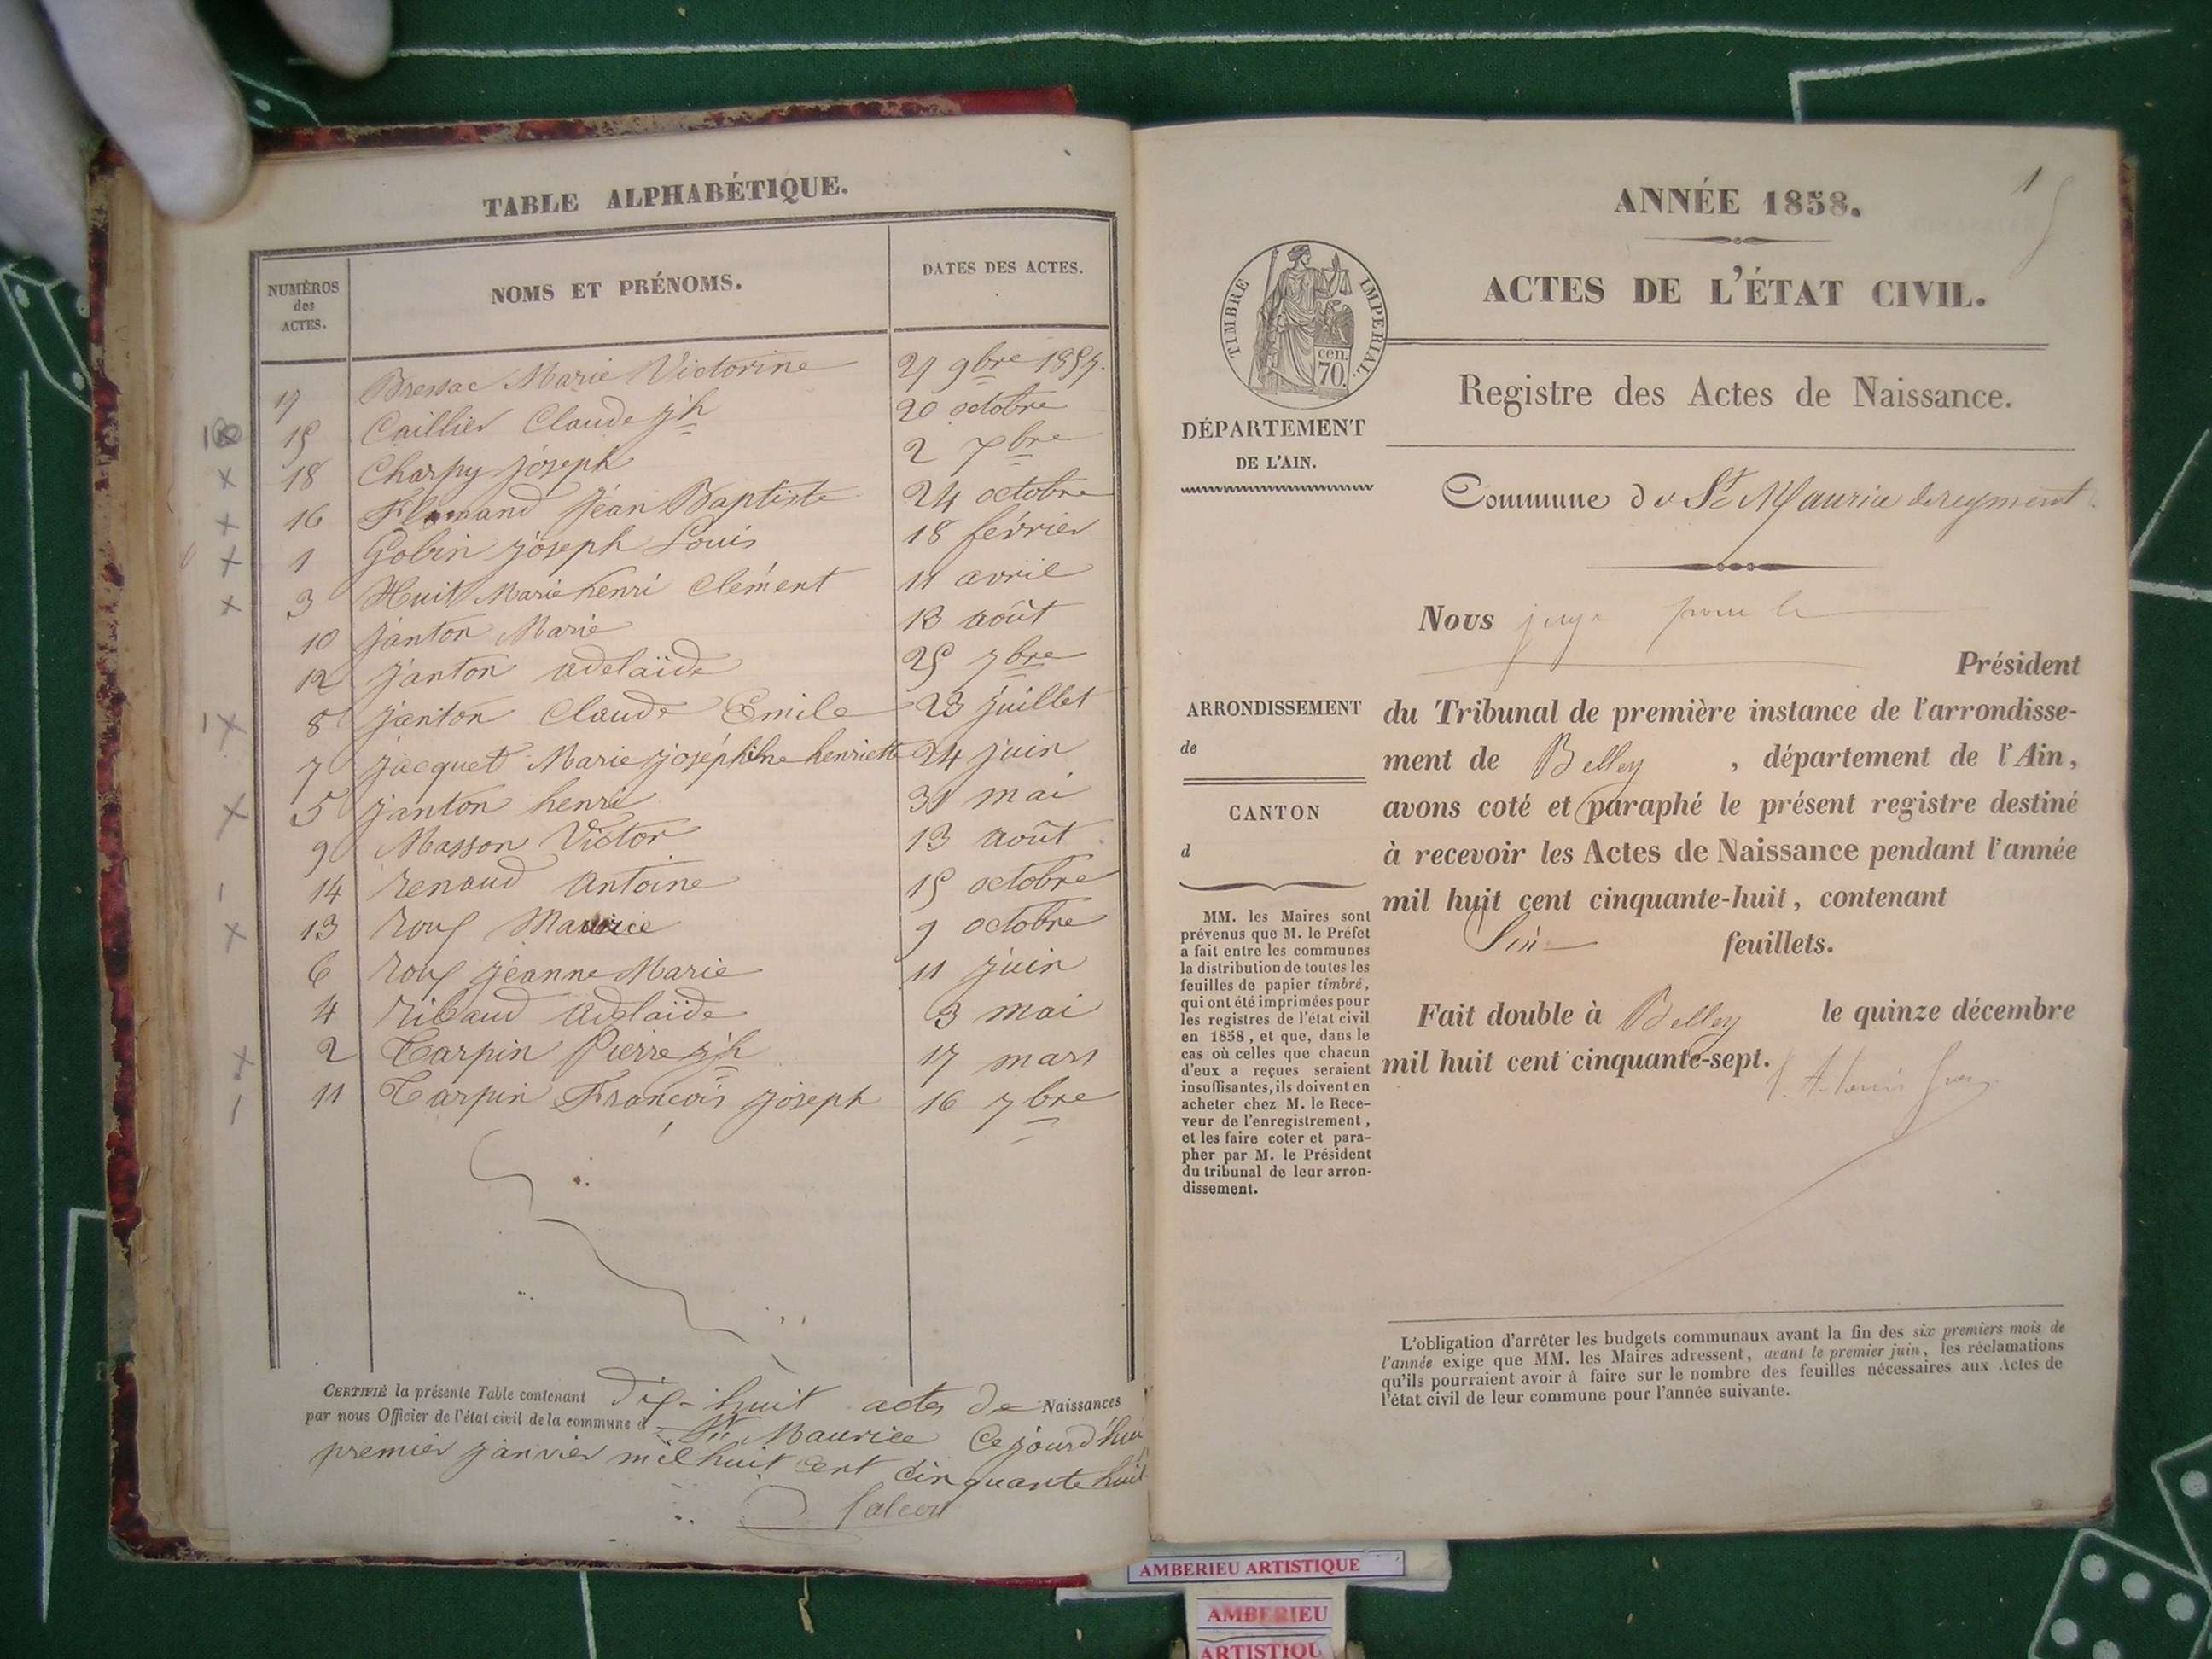 TABLE ALPHABÉTIQUE.
NUMÉROS des ACTES.
NOMS ET PRÉNOMS.
DATES DES ACTES.
17 Bressac Marie Victorine 27 9bre 1857.
15 Caillier Claude Jh 20 octobre
18 Charpy joseph 2 Xbre
16 Flamand Jéan Baptiste 24 octobre
1 Gobin joseph Louis 18 février
3 Huit Marie henri Clément 11 avril
10 Janton Marie 13 août
12 Janton adelaïde 25 7bre
8 Janton Claude Emile 23 juillet
7 Jacquet Marie joséphine henriette 24 juin
5 Janton henri 31 mai
9 Masson Victor 13 août
14 Renaud Antoine 15 octobre
13 Roux Maurice 9 octobre
6 Roux jéanne Marie 11 juin
4 Ribaud Adelaïde 3 mai
2 Tarpin Pierre jh 17 mars
11 Tarpin François joseph 16 7bre
CERTIFIÉ la présente Table contenant dix-huit actes de Naissances
par nous Officier de l'état civil de la commune d St Maurice Ce jourd'hui
premier janvier mil huit cent Cinquante huit
Falcon
1
ANNÉE 1858.
ACTES DE L'ÉTAT CIVIL.
TIMBRE IMPERIAL.
cen.
70.
Registre des Actes de Naissance.
DÉPARTEMENT
DE L'AIN.
Commune de St Maurice de reymens
Nous juge pour le
Président
ARRONDISSEMENT
de
CANTON
d
du Tribunal de première instance de l'arrondisse-
ment de Belley, département de l'Ain,
avons coté et paraphé le présent registre destiné
à recevoir les Actes de Naissance pendant l'année
mil huit cent cinquante-huit, contenant
Six feuillets.
Fait double à Belley le quinze décembre
mil huit cent cinquante-sept.
MM. les Maires sont
prévenus que M. le Préfet
a fait entre les communes
la distribution de toutes les
feuilles de papier timbré,
qui ont été imprimées pour
les registres de l'état civil
en 1858, et que, dans le
cas où celles que chacun
d'eux a reçues seraient
insuffisantes, ils doivent en
acheter chez M. le Rece-
veur de l'enregistrement,
et les faire coter et para-
pher par M. le Président
du tribunal de leur arron-
dissement.
L'obligation d'arrêter les budgets communaux avant la fin des six premiers mois de
l'année exige que MM. les Maires adressent, avant le premier juin, les réclamations
qu'ils pourraient avoir à faire sur le nombre des feuilles nécessaires aux Actes de
l'état civil de leur commune pour l'année suivante.
AMBERIEU ARTISTIQUE
AMBERIEU
ARTISTIQU